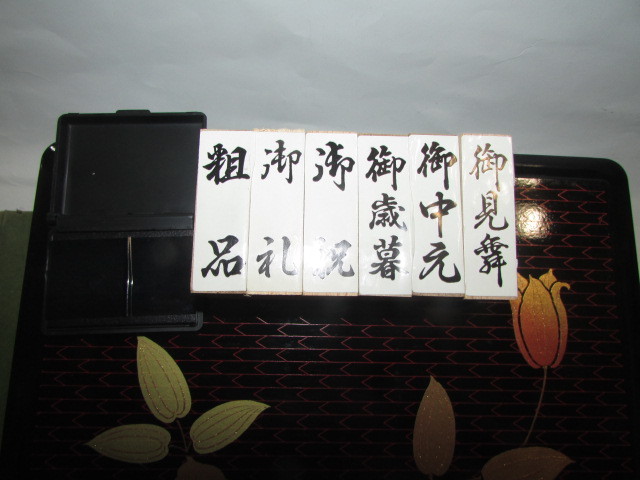 御見舞
御中元
御歳暮
御祝
御礼
粗品